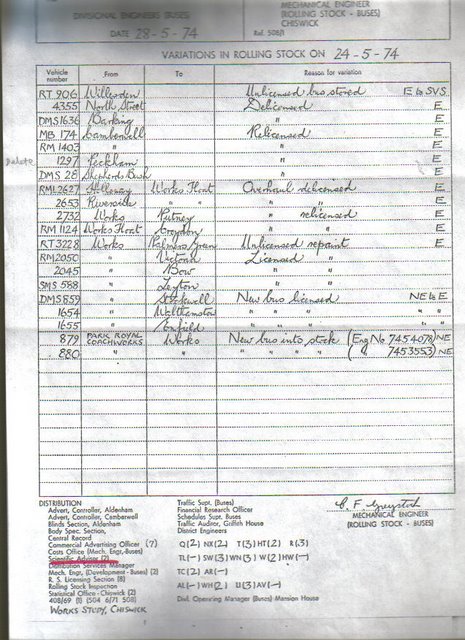 DIVISIONAL ENGINEERS (BUSES)
MECHANICAL ENGINEER
(ROLLING STOCK - BUSES)
CHISWICK
DATE 28-5-74
Ref. 508/1
VARIATIONS IN ROLLING STOCK ON 24-5-74
Vehicle number From To Reason for variation
RT 906 Willesden Unlicensed bus stored E to SVS
4355 North Street Delicensed E
DMS 1636 Barking " E
MB 174 Camberwell Relicensed E
RM 1403 " " E
delete 1297 Peckham " E
DMS 28 Shepherds Bush " E
RML 2627 Athenay Works Float Overhaul delicensed E
2653 Riverside " " " " E
2732 Works Putney " relicensed E
RM 1124 Works Float Croydon " " E
RT 3228 Works Palmers Green Unlicensed repaint E
RM 2050 " Victoria Licensed "
2045 " Bow " "
SMS 588 " Leyton " "
DMS 859 " Stockwell New bus licensed NE to E
1654 " Walthamstow " " " " "
1655 " Enfield " " " " "
879 PARK ROYAL COACHWORKS Works New bus into stock (Eng No 7454078) NE
880 " " " " " " ( " 7453553) NE
DISTRIBUTION
Advert. Controller, Aldenham
Advert. Controller, Camberwell
Blinds Section, Aldenham
Body Spec. Section,
Central Record
Commercial Advertising Officer (7)
Costs Office (Mech. Engr.-Buses)
Scientific Adviser (2)
Distribution Services Manager
Mech. Engr. (Development - Buses) (2)
R. S. Licensing Section (8)
Rolling Stock Inspection
Statistical Office - Chiswick (2)
408/69 (1) (504 6/71 508)
WORKS STUDY, CHISWICK
Traffic Supt. (Buses)
Financial Research Officer
Schedules Supt. Buses
Traffic Auditor, Griffith House
District Engineers
Q(2) NX(2) T(3) HT(2) R(3)
TL(-) SW(3) WN(3) W(2) HW(-)
TC(2) AR(-)
AL(-) WH(2) U(3) AV(-)
Divl. Operating Manager (Buses) Mansion House
MECHANICAL ENGINEER
(ROLLING STOCK - BUSES)